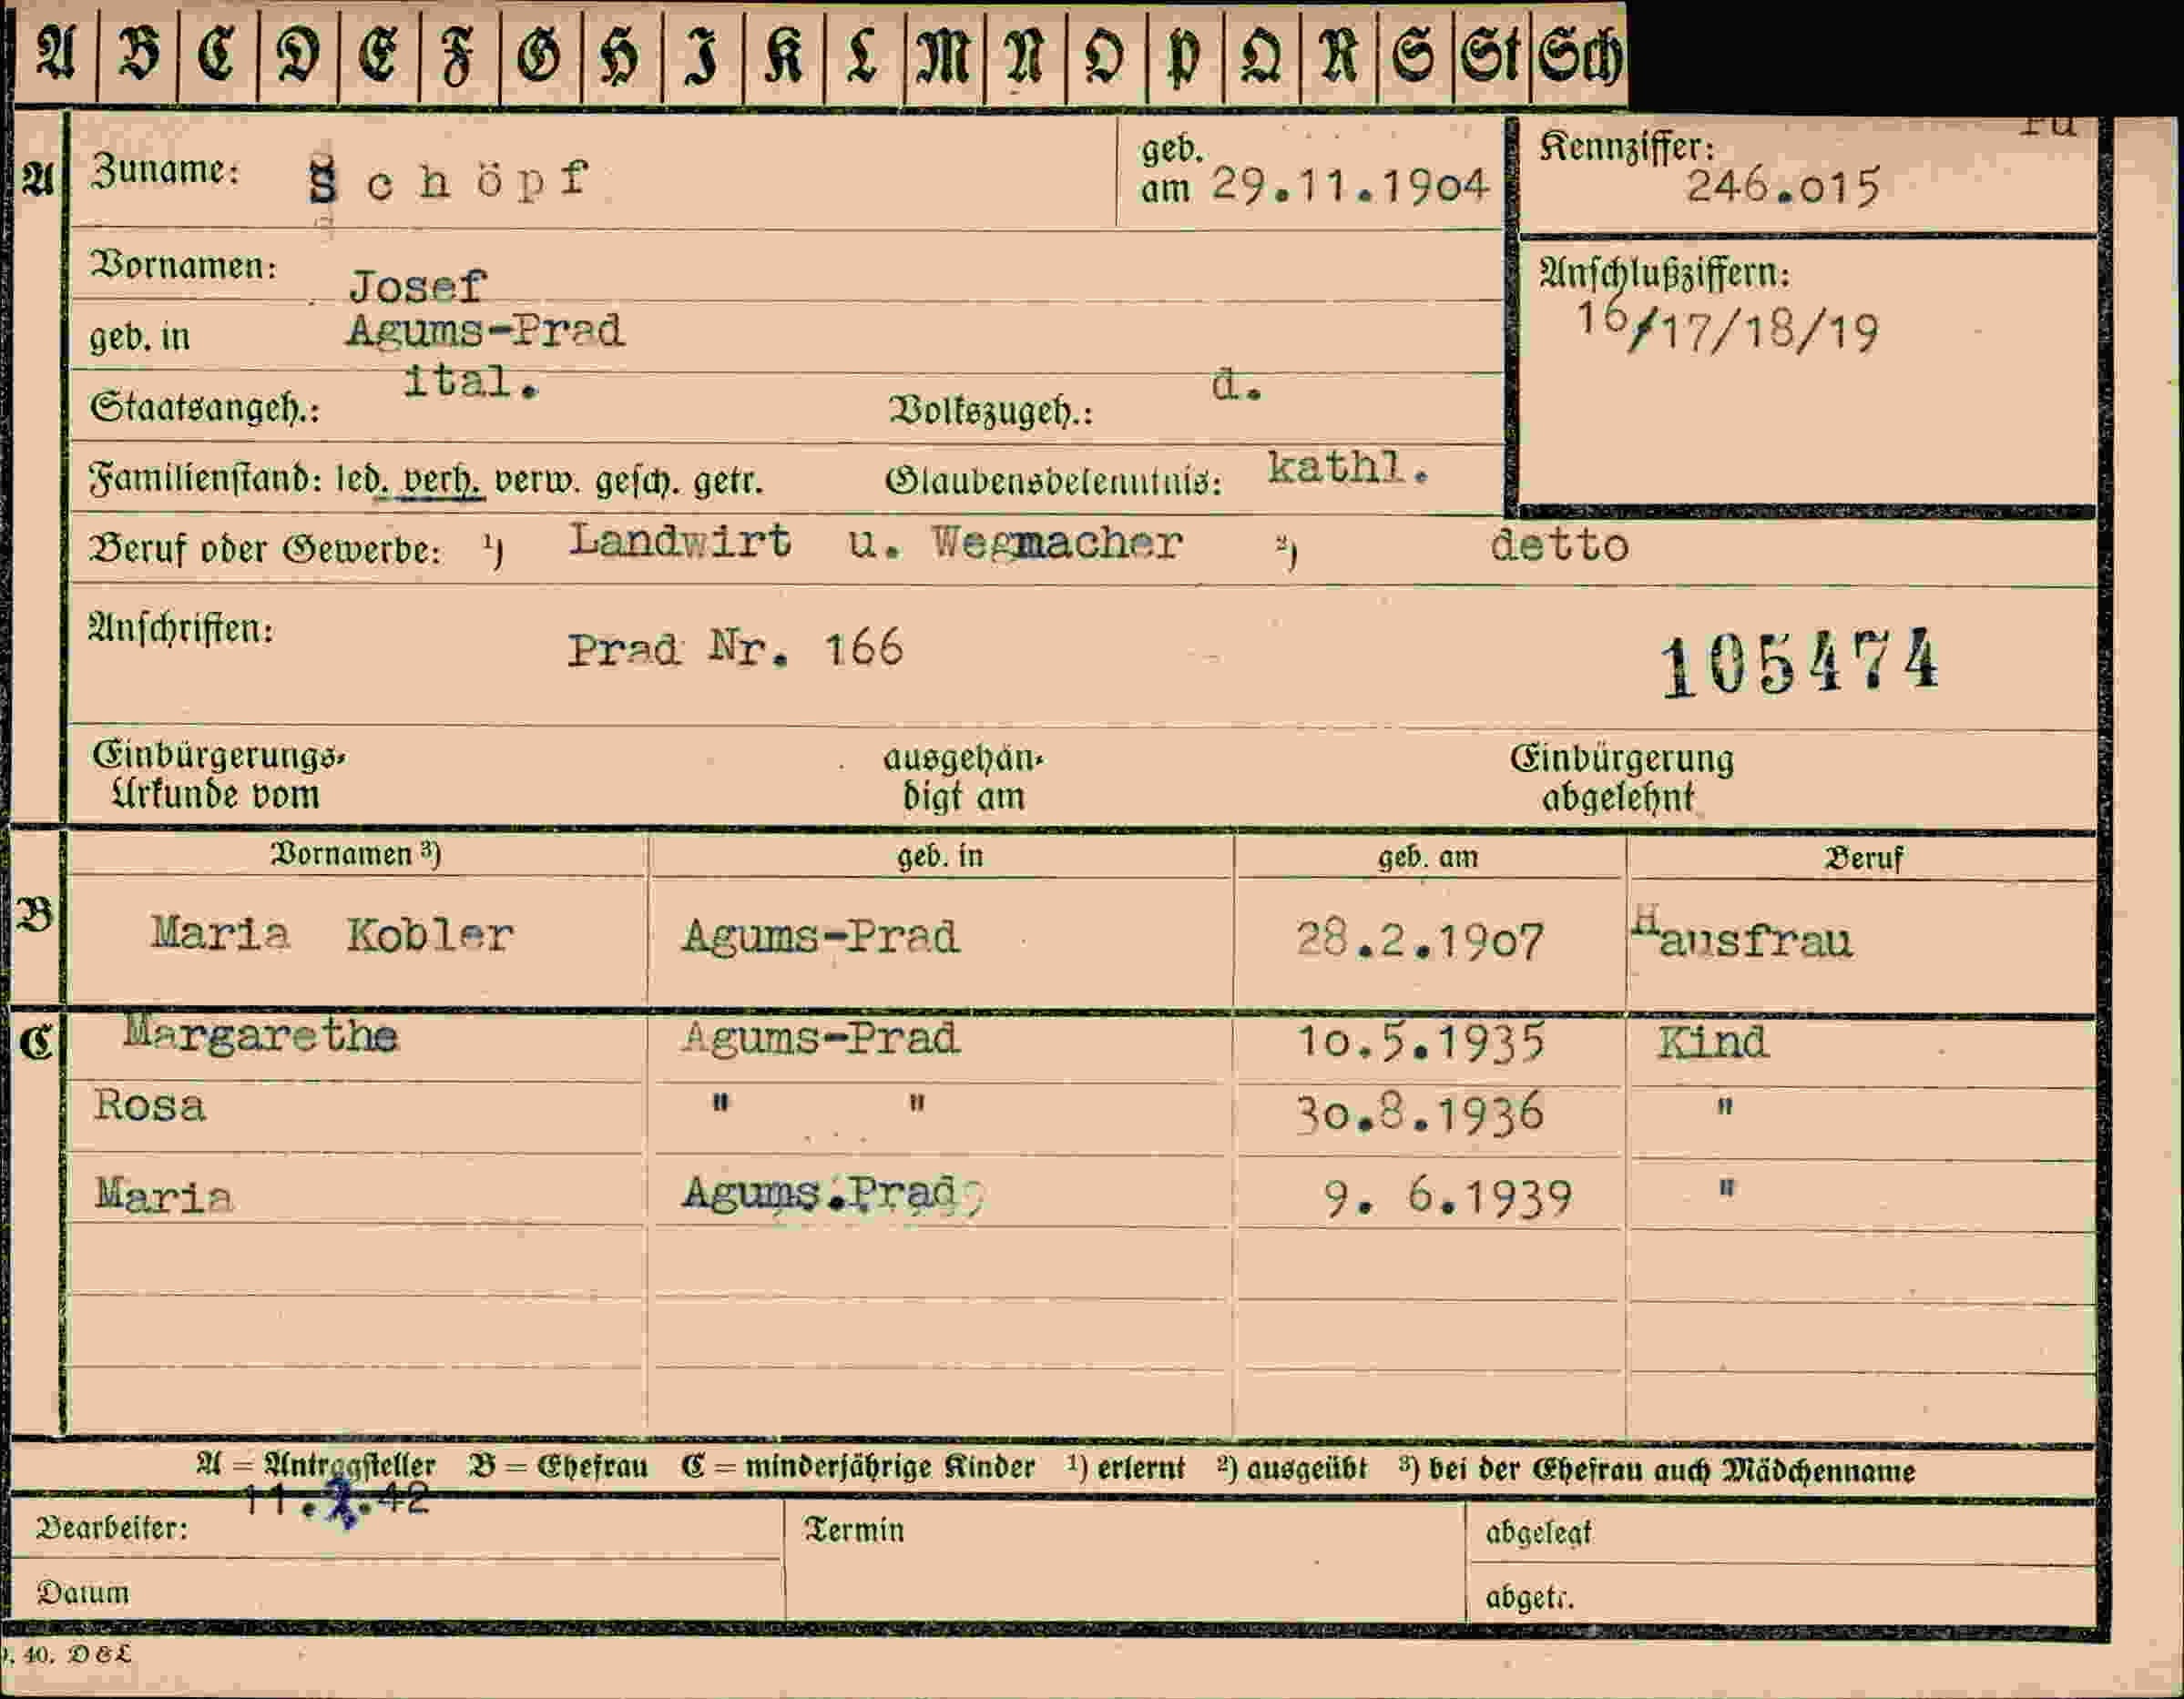 A B C D E F G H I K L M N O P Q R S St Sch
A Zuname: Schöpf geb. am 29.11.1904 Kennziffer: 246.015
Vornamen: Josef Anschlußziffern: 16/17/18/19
geb. in Agums-Prad
Staatsangeh.: ital. Volkszugeh.: d.
Familienstand: led. verh. verw. gesch. getr. Glaubensbekenntnis: kathl.
Beruf oder Gewerbe: 1) Landwirt u. Wegmacher 2) detto
Anschriften: Prad Nr. 166 105474
Einbürgerungs- ausgehän- Einbürgerung
Urkunde vom digt am abgelehnt
Vornamen 3) geb. in geb. am Beruf
B Maria Kobler Agums-Prad 28.2.1907 Hausfrau
C Margarethe Agums-Prad 10.5.1935 Kind
Rosa " " 30.8.1936 "
Maria Agums.Prad 9. 6.1939 "
A = Antragsteller B = Ehefrau C = minderjährige Kinder 1) erlernt 2) ausgeübt 3) bei der Ehefrau auch Mädchenname
Bearbeiter: Termin abgelegt
Datum abgetr.
40. D&L